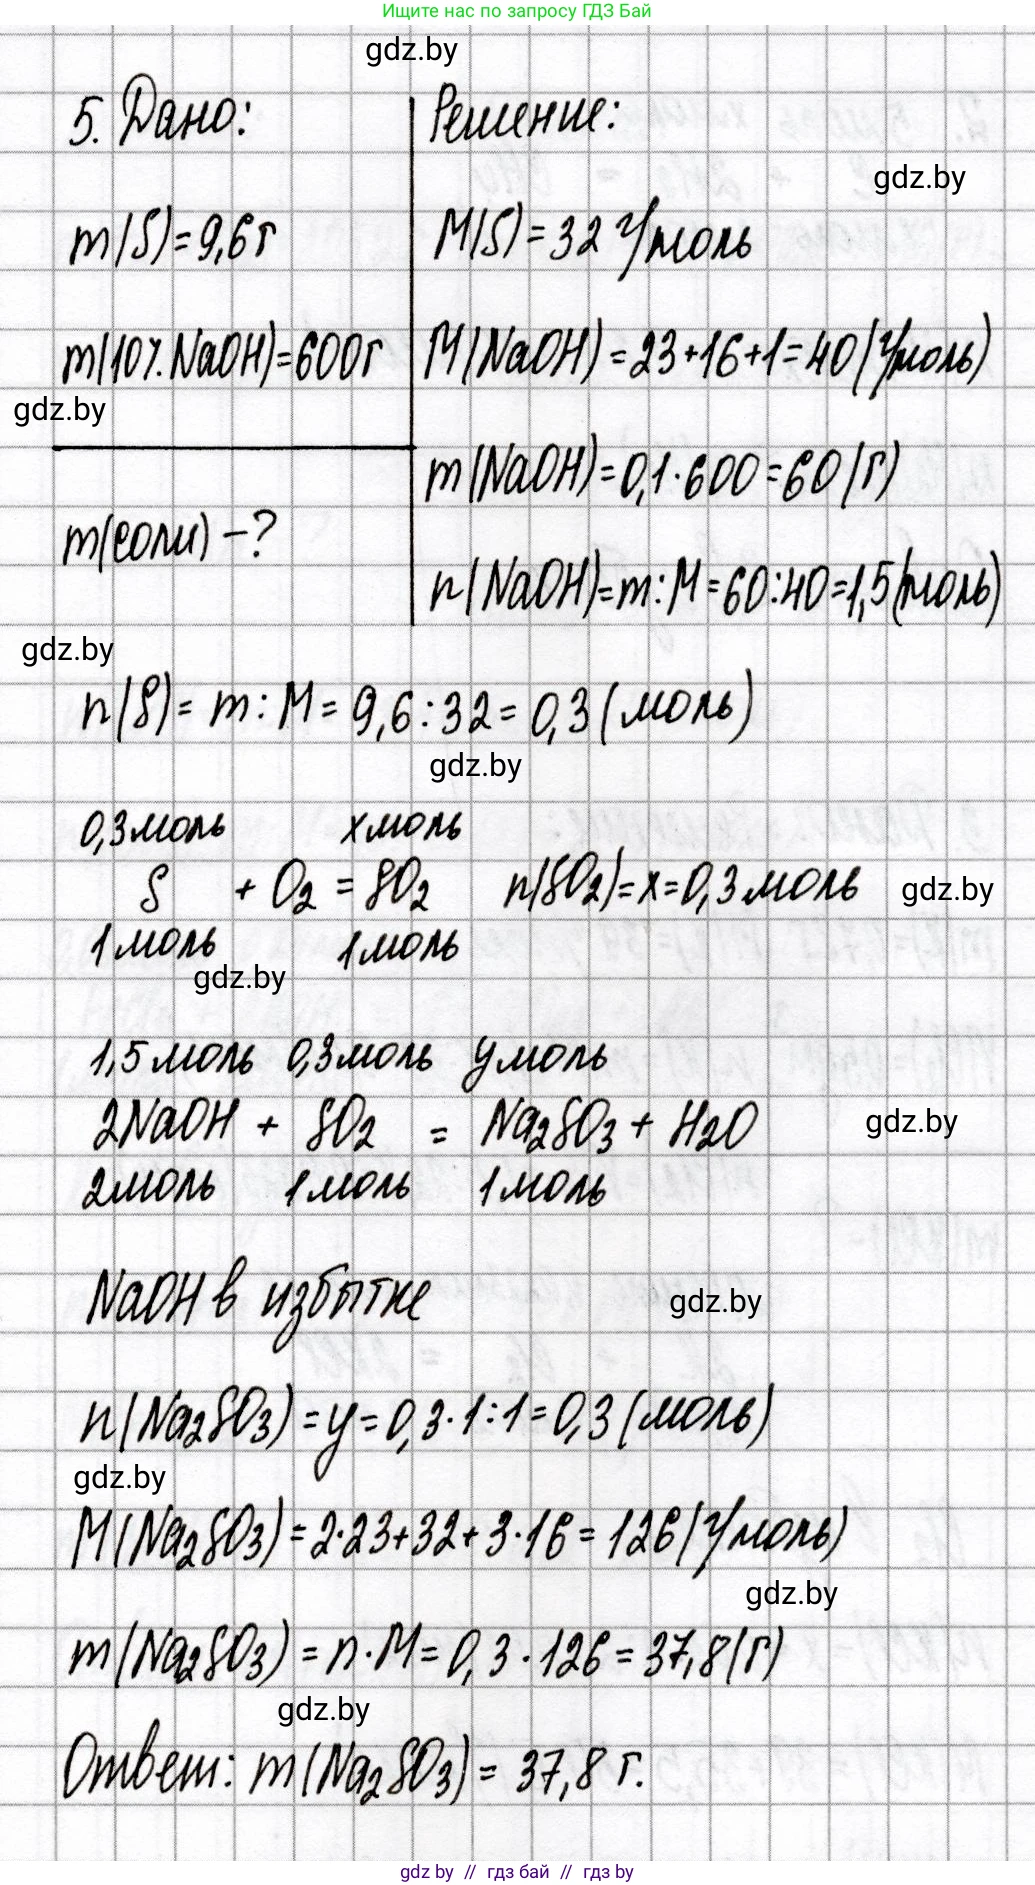 Ищите нас по запросу ГДЗ Бай
gdz.by
5. Дано:
Решение:
gdz.by
m(S)=9,6г
M(S)=32 г/моль
m(10%.NaOH)=600г
M(NaOH)=23+16+1=40(г/моль)
gdz.by
m(NaOH)=0,1·600=60(г)
m(соли)-?
n(NaOH)=m:M=60:40=1,5(моль)
gdz.by
n(S)= m:M= 9,6:32= 0,3(моль)
gdz.by
0,3моль хмоль
S + O2 = SO2 n(SO2)=x=0,3моль
gdz.by
1моль 1моль
gdz.by
1,5моль 0,3моль yмоль
2NaOH + SO2 = Na2SO3 + H2O
gdz.by
2моль 1моль 1моль
NaOH в избытке
gdz.by
n(Na2SO3)=y=0,3·1:1=0,3(моль)
gdz.by
M(Na2SO3)=2·23+32+3·16=126(г/моль)
gdz.by
m(Na2SO3)=n·M=0,3·126=37,8(г)
gdz.by
Ответ: m(Na2SO3)= 37,8 г.
gdz by // гдз бай // гдз by